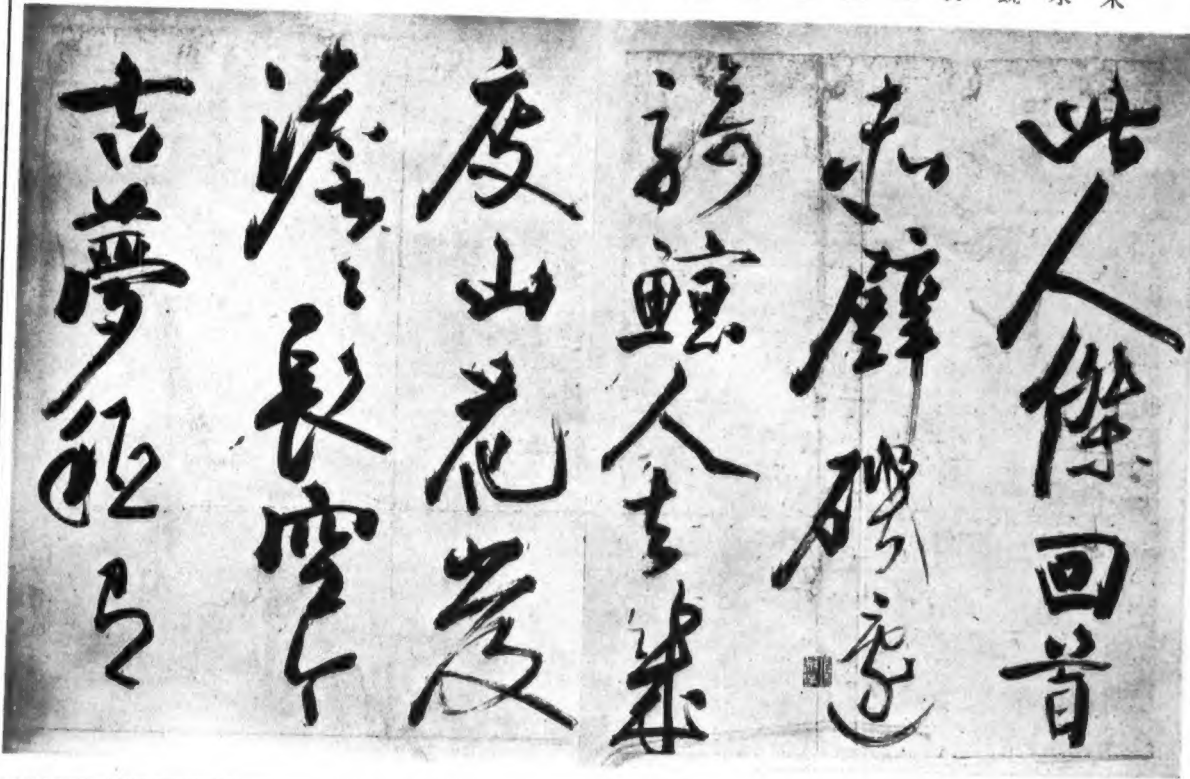 此人傑回首
赤壁磯邊
騎鯨人去幾
度山花發
澹々長空今
古夢秖有